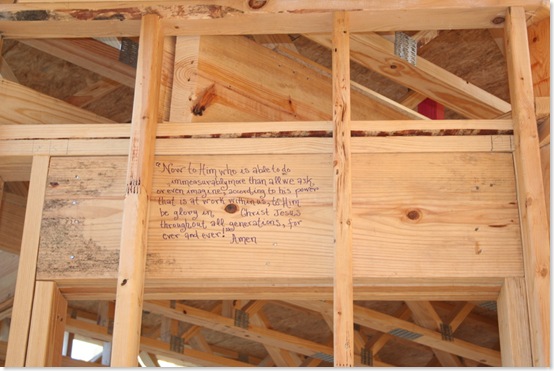 "Now to Him who is able to do
immeasurably more than all we ask
or even imagine, according to his power
that is at work within us, to Him
be glory in Christ Jesus
throughout all generations, for
ever and ever!
Amen